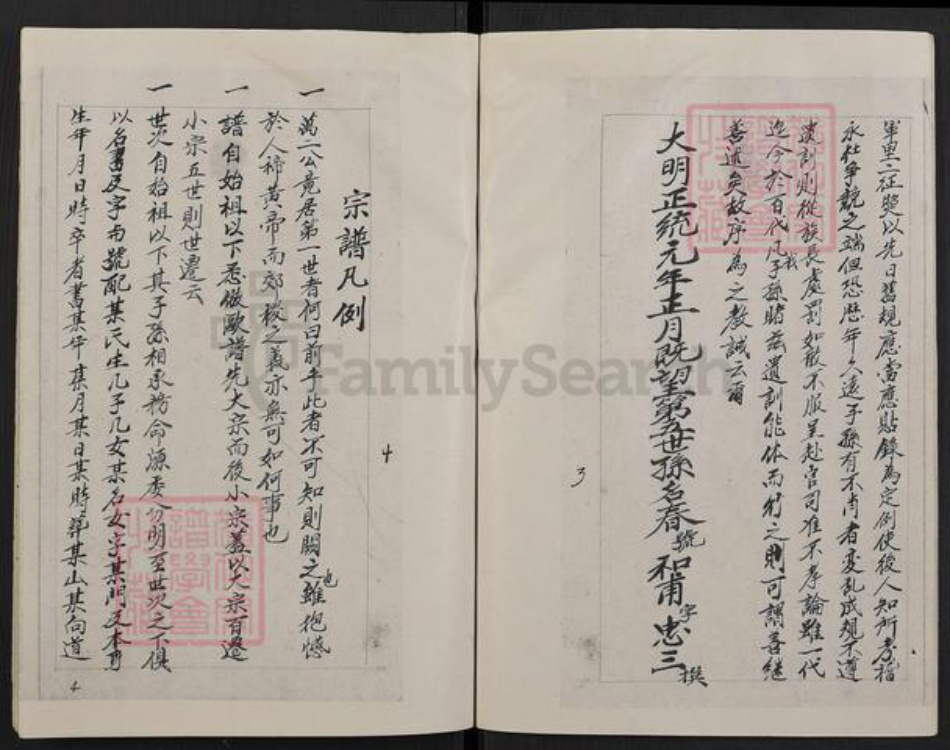 軍里之征獎以先日舊規應當應貼錄為定例使後人知所考稽
永杜爭競之端但恐歷年人遠子孫有不肖者憂乱成規不遵
遺訓則從族長處罰如散不服呈赴官司准不孝論雖一代
迄今於百代我凡子孫睹茲遺訓能体而行之則可謂善繼
善述矣故序為之教誡云爾
大明正統元年正月既望第五世孫名春號和甫字忠三撰
3
宗譜凡例
一萬二公竟居第一世者何曰前乎此者不可知則闕之也雖抱憾
於人禘黃帝而郊稷之義亦無可如何事也
一譜自始祖以下悉倣歐譜先大宗而後小宗蓋以大宗百遷
小宗五世則世遷云
一世次自始祖以下其子孫相承務命源委分明至世次之下俱
以名書及字与號配某氏生几子几女某名女字某門及本身
生年月日時卒者書某年某月某日某時葬某山某向道
4
4
FamilySearch